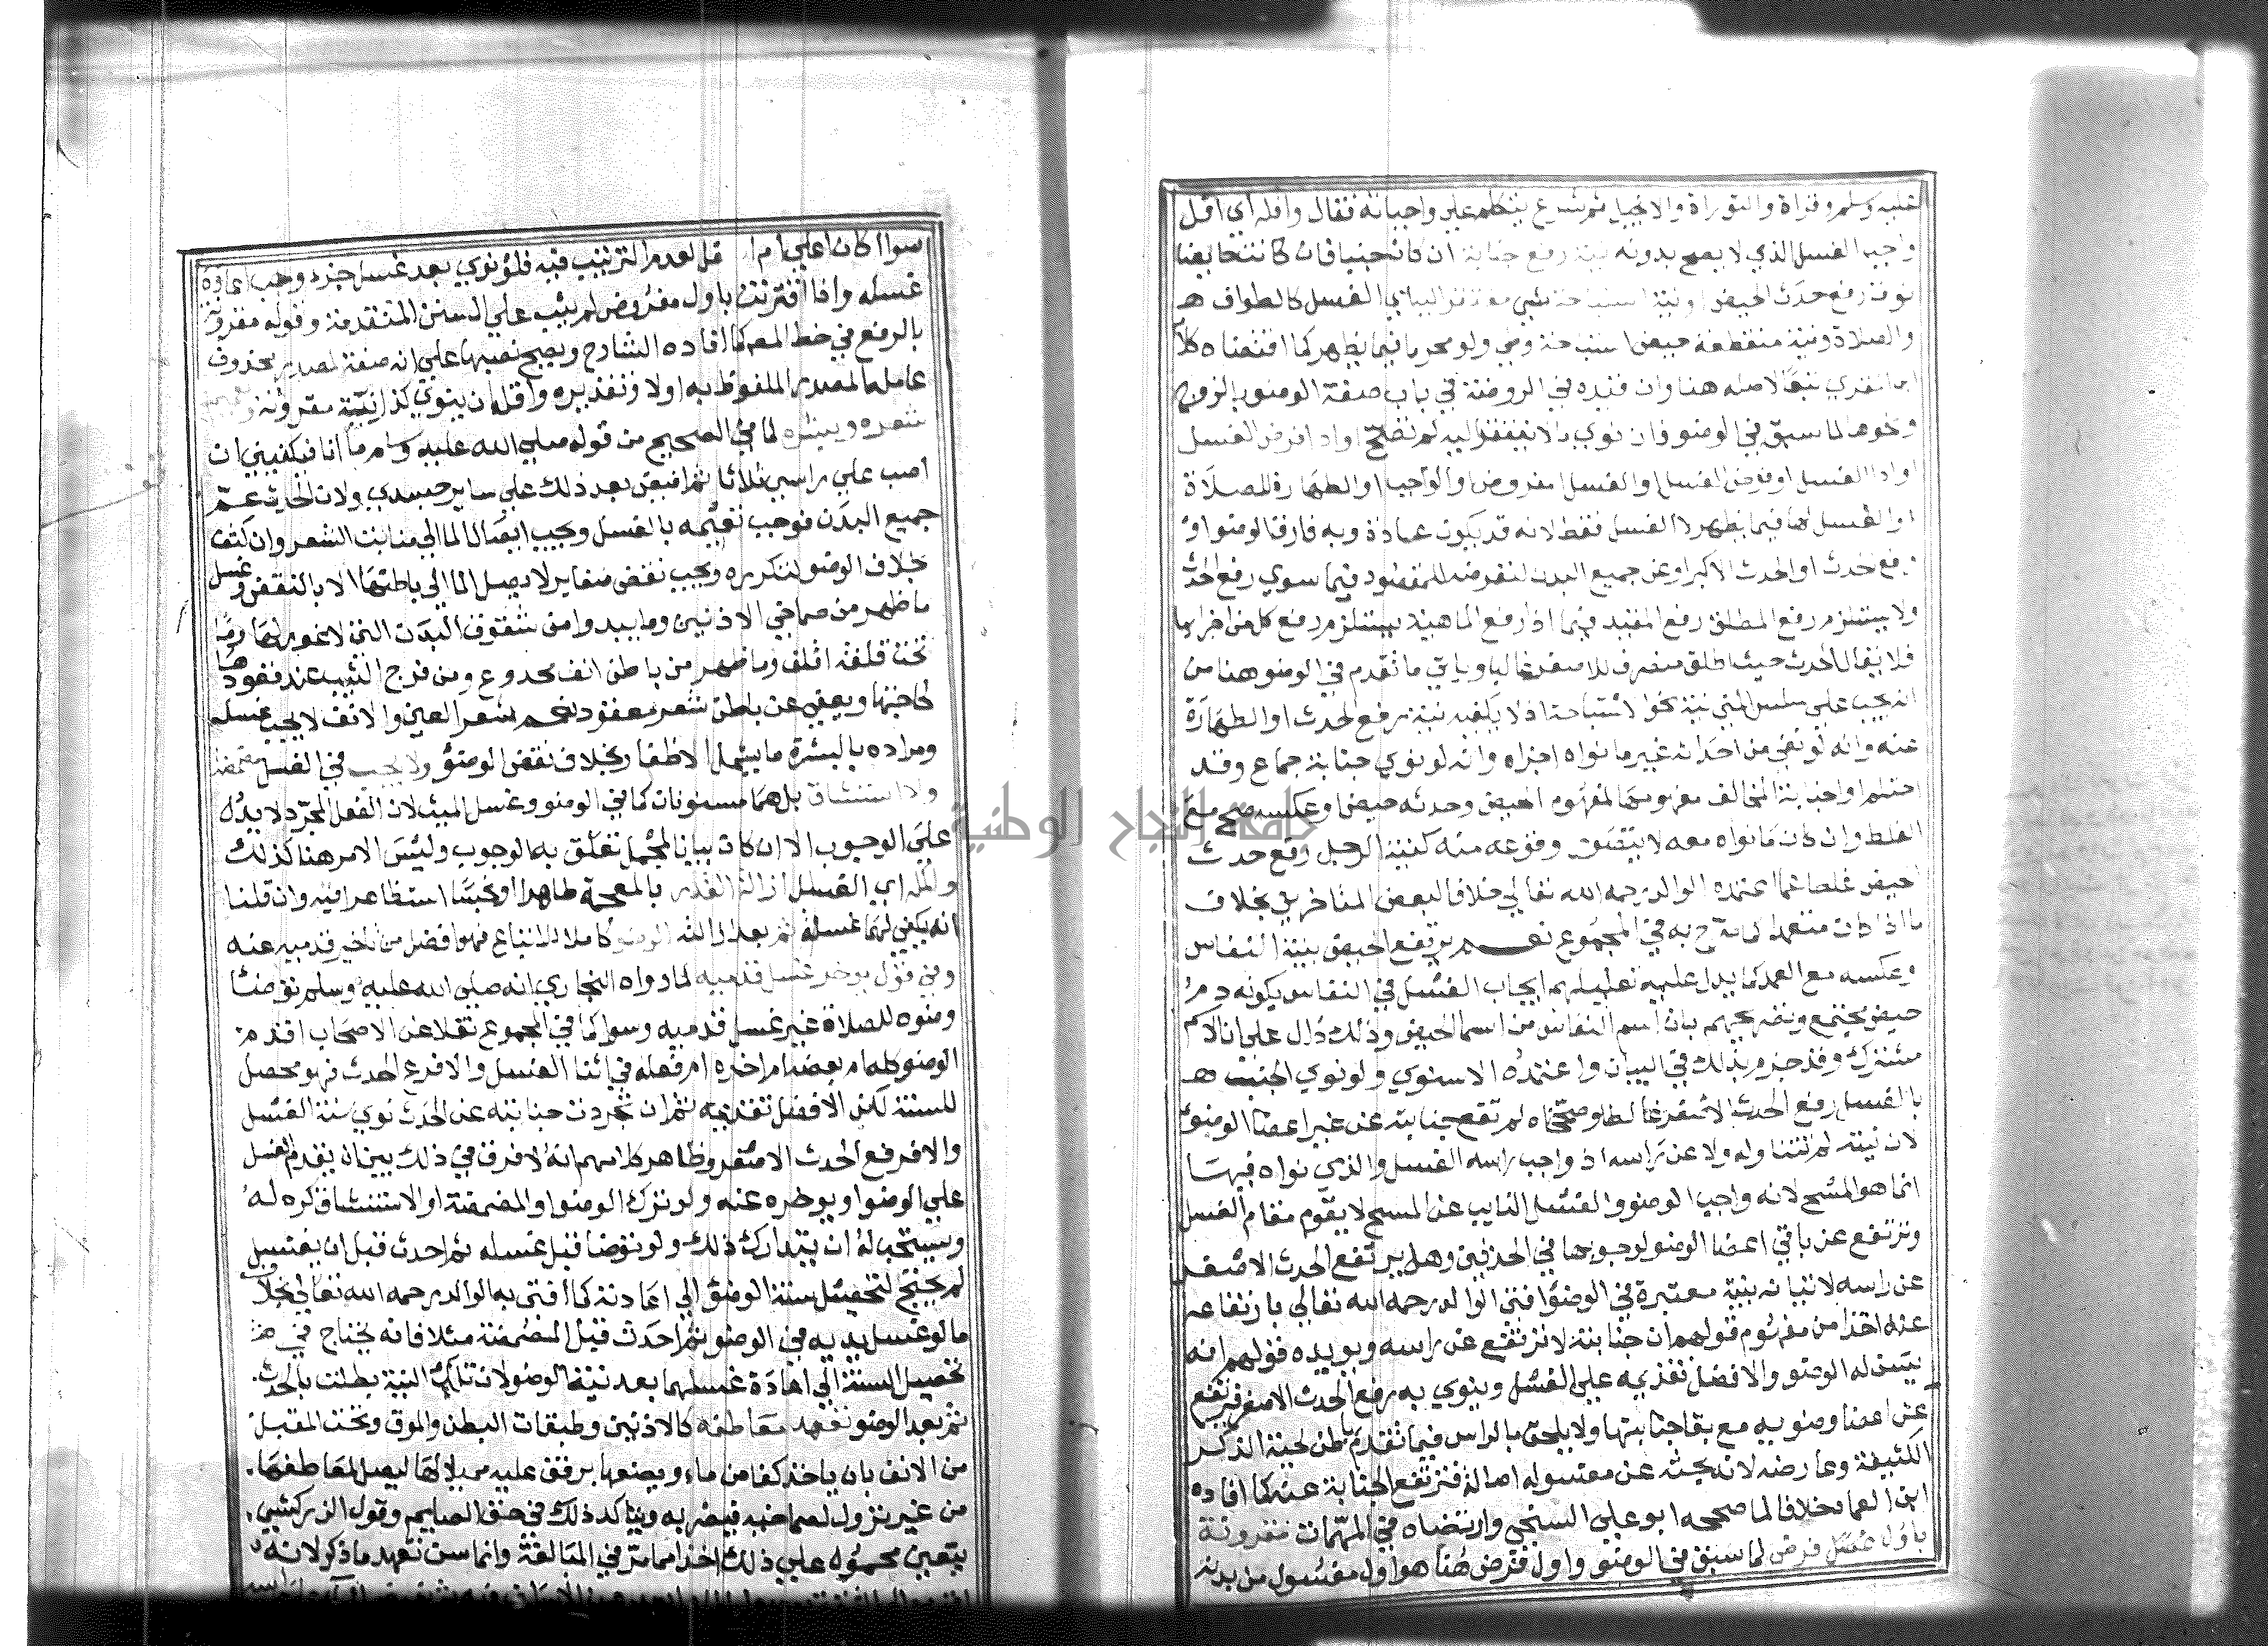 عليه وسلم وقراة والتوراة والانجيل ثم شرع يتكلم علي واجباته فقال واقله اي اقل
واجب الغسل الذي لا يصح بدونه نية رفع جنابة ان كان جنبا فان كانت حايضا
نوت رفع حدث الحيض او نية استباحة شي مفتقر اليه اي الغسل كالطواف
والصلاة ونية منقطعة حيض استباحة وطي ولو محرما فيما يظهر كما اقتضاه كلام
ابن المقري تبعا لاصله هنا وان قيده في الروضة في باب صفة الوضو بالزوج
ونحوها لما سبق في الوضو فان نوي ما لا يفتقر اليه لم تصح او ادا فرض الغسل
او ادا الغسل او فرض الغسل او الغسل المفروض او الواجب او الطهارة للصلاة
او الغسل لها فيما يظهر لا الغسل فقط لانه قد يكون عادة وبه فارق الوضو او
رفع حدث او الحدث الاكبر او عن جميع البدن لتعرضه للمقصود فيما سوي رفع الحدث
ولا يستلزم رفع المطلق رفع المقيد فيما اذ رفع الماهية يستلزم رفع كل من اجزايها
فلا يقال الحدث حيث اطلق منصرف للاصغر غالبا وياتي ما تقدم في الوضو هنا من
انه يجب علي سلس المني نية نحو الاستباحة اذ لا يكفيه نية رفع الحدث او الطهارة
عنه وانه لو نفي من احداثه غير ما نواه اجزاه وانه لو نوي جنابة جماع وقد
احتلم او جنابة المخالف مفهومها لمفهوم الحيض وحدثه حيض وعكسه صح مع
الغلط وان كان ما نواه معه لا يتصور وقوعه منه كنية الرجل رفع حدث
الحيض غلطا كما اعتمده الوالد رحمه الله تعالي خلافا لبعض المتاخرين بخلاف
ما اذا كان متعمدا كما صرح به في المجموع نعم يرتفع الحيض بنية النفاس
وعكسه مع العمد كما يدل عليه تعليلهم ايجاب الغسل في النفاس بكونه دم
حيض مجتمع وتصريحهم بان اسم النفاس من اسما الحيض وذلك دال علي ان الاسم
مشترك وقد جزم بذلك في البيان واعتمده الاسنوي ولو نوي الجنب
بالغسل رفع الحدث الاصغر غالطا وصححناه لم ترتفع جنابته عن غير اعضا الوضو
لان نيته لم تتناوله ولا عن راسه اذ واجب راسه الغسل والذي نواه فيها
انما هو المسح لانه واجب الوضو والغسل النايب عن المسح لا يقوم مقام الغسل
وترتفع عن باقي اعضا الوضو لوجوبها في الحدثين وهل يرتفع الحدث الاصغر
عن راسه لاتيانه بنية معتبرة في الوضو افتي الوالد رحمه الله تعالي بارتفاعه
عنه اخذا من مفهوم قولهم ان جنابته لا ترتفع عن راسه ويويده قولهم انه
يسن له الوضو والافضل تقديمه علي الغسل وينوي به رفع الحدث الاصغر فيرتفع
عن اعضا وضويه مع بقا جنابتها ولا يلحق بالراس فيما تقدم باطن لحية الذكر
الكثيفة وعارضه لانه يحث عن مغسوله اصالة فترتفع الجنابة عنه كما افاده
ابن العماد خلافا لما صححه ابو علي السنجي وارتضاه في المهمات مقرونة
باول غسل فرض لما سبق في الوضو واول فرض هنا هو اول مغسول من بدنه
سوا اكان اعلي ام اسفل لعدم الترتيب فيه فلو نوي بعد غسل جزء وجب اعادة
غسله واذا اقترنت باول مفروض لم يثب علي السنن المتقدمة وقوله مقرونة
بالرفع في خط المص كما افاده الشارح ويصح نصبها علي انه صفة لمصدر محذوف
عامله المصدر الملفوظ به اولا وتقديره واقله ان ينوي كذا نية مقرونة وتعميم
شعره وبشره لما في الصحيح من قوله صلي الله عليه وسلم اما انا فيكفيني ان
اصب علي راسي ثلاثا ثم افيض بعد ذلك علي ساير جسدي ولان الحدث عم
جميع البدن فوجب تعميمه بالغسل ويجب ايصال الما الي منابت الشعر وان كثف
بخلاف الوضو لتكرره ويجب نقض ضفاير لا يصل الما الي باطنها الا بالنقض وغسل
ما ظهر من صماخي الاذنين وما يبدو من شقوق البدن التي لا غور لها وما
تحت قلفة اقلف وما ظهر من باطن انف مجدوع ومن فرج الثيب عند قعودها
لحاجتها ويعفي عن باطن شعر معقود نعم شعر العين والانف لا يجب غسله
ومراده بالبشرة ما يشمل الاظفار بخلاف نقض الوضو ولا يجب في الغسل مضمضة
ولا استنشاق بل هما مسنونان كما في الوضو وغسل الميت لان الفعل المجرد لا يدل
علي الوجوب الا ان كان بيانا لمجمل تعلق به الوجوب وليس الامر هنا كذلك
واكمله اي الغسل ازالة القذر بالمعجمة طاهرا او نجسا استظهارا فيه وان قلنا
انه يكفي لهما غسلة ثم بعد ازالته الوضو كاملا للاتباع فهو افضل من تاخير قدميه عنه
وفي قول يوخر غسل قدميه لما رواه البخاري انه صلي الله عليه وسلم توضا
وضوه للصلاة غير غسل قدميه وسوا كما في المجموع نقلا عن الاصحاب اقدم
الوضو كله ام بعضه ام اخره ام فعله في اثنا الغسل والافرغ الحدث فهو محصل
للسنة لكن الافضل تقديمه ثم ان تجردت جنابته عن الحدث نوي سنة الغسل
والا رفع الحدث الاصغر وظاهر كلامهم انه لا فرق في ذلك بين ان يقدم الغسل
علي الوضو او يوخره عنه ولو ترك الوضو او المضمضة او الاستنشاق كره له
ويستحب له ان يتدارك ذلك ولو توضا قبل غسله ثم احدث قبل ان يغتسل
لم يحتج لتحصيل سنة الوضو الي اعادته كما افتي به الوالد رحمه الله تعالي بخلاف
ما لو غسل يديه في الوضو ثم احدث قبل المضمضة مثلا فانه يحتاج في
تحصيل السنة الي اعادة غسلهما بعد نية الوضو لان تلك النية بطلت بالحدث
ثم بعد الوضو تعهد معاطفه كالاذنين وطبقات البطن والموق وتحت المقبل
من الانف بان ياخذ كفا من ماء ويضعها برفق عليه مميلا لها ليصل لمعاطفها
من غير نزول لصماخيه فيضر به ويتاكد ذلك في حق الصايم وقول الزركشي
يتعين محمول علي ذلك اخذا مما مر في المبالغة وانما سن تعهد ما ذكر لانه